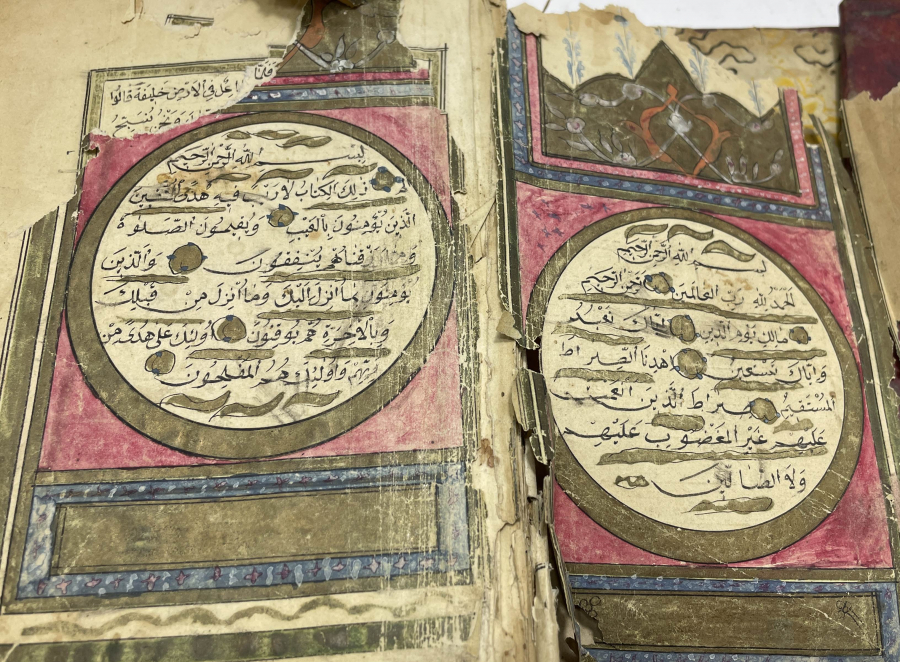 بسم الله الرحمن الرحيم
الحمد لله رب العالمين الرحمن الرحيم
مالك يوم الدين اياك نعبد
واياك نستعين اهدنا الصراط
المستقيم صراط الذين انعمت
عليهم غير المغضوب عليهم
ولا الضالين
جاعل في الارض خليفة قالوا
بسم الله الرحمن الرحيم
الم ذلك الكتاب لا ريب فيه هدى للمتقين
الذين يؤمنون بالغيب ويقيمون الصلوة
ومما رزقناهم ينفقون والذين
يومنون بما انزل اليك وما انزل من قبلك
وبالاخرة هم يوقنون اولئك على هدى من
ربهم واولئك هم المفلحون